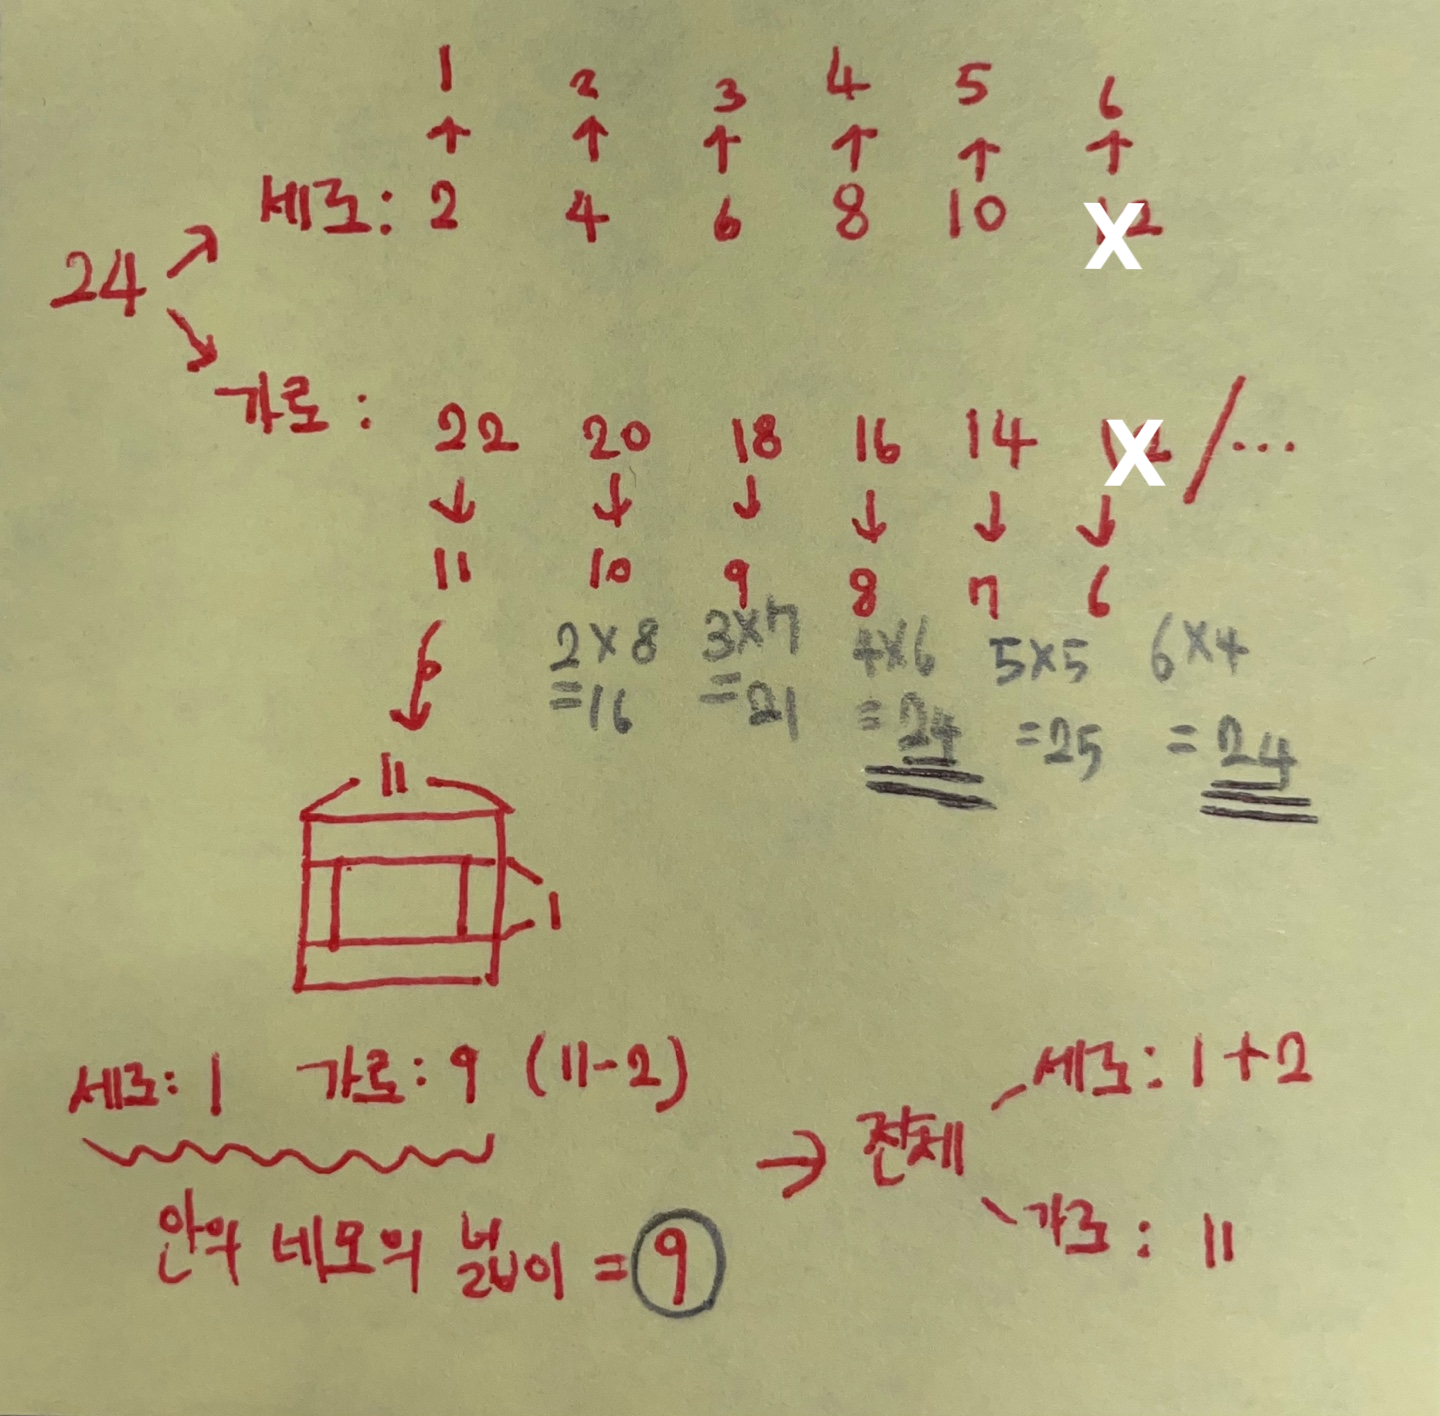 1 2 3 4 5 6
↑ ↑ ↑ ↑ ↑ ↑
세로: 2 4 6 8 10 X
24
가로: 22 20 18 16 14 X /...
↓ ↓ ↓ ↓ ↓ ↓
11 10 9 8 7 6
2×8 3×7 4×6 5×5 6×4
=16 =21 =24 =25 =24
11
1
세로: 1 가로: 9 (11-2)
안의 네모의 넓이 = 9
→ 전체
세로: 1+2
가로: 11